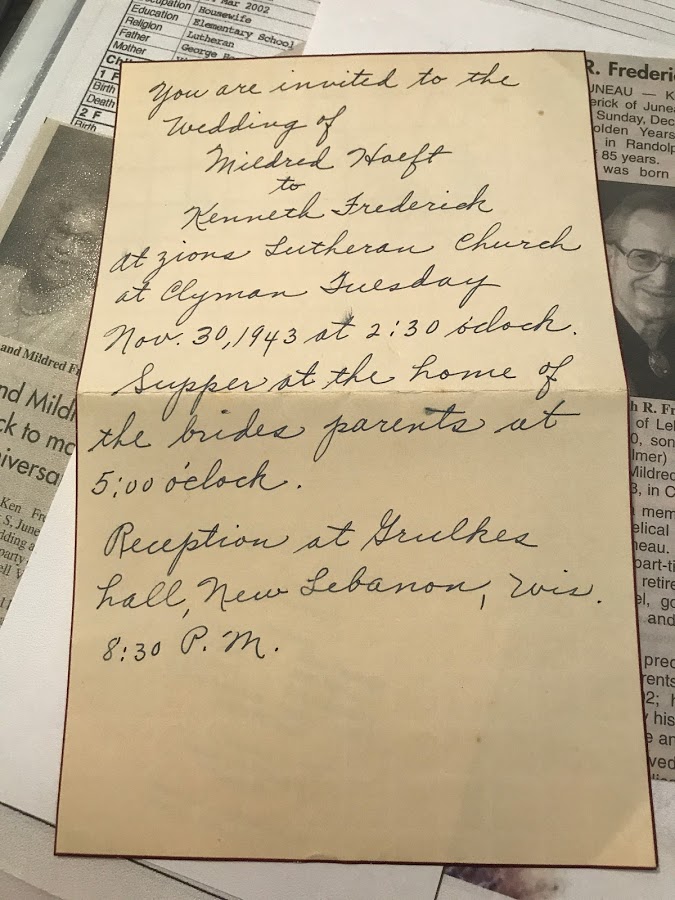 Mar 2002
Occupation Housewife
Education Elementary School
Religion Lutheran
Father George
Mother
1 F
Birth
Death
2 F
Birth
You are invited to the
Wedding of
Mildred Hoeft
to
Kenneth Frederick
at Zions Lutheran Church
at Clyman Tuesday
Nov. 30, 1943 at 2:30 o'clock.
Supper at the home of
the brides parents at
5:00 o'clock.
Reception at Grulkes
hall, New Lebanon, Wis.
8:30 P. M.
and Mildred
nd Mild
ck to
iversa
Ken
S, June
dding
party
R. Frederi
UNEAU — K
erick of Junea
Sunday, Dec
olden Years
in Randolp
85 years.
was born
h R. Fr
of Le
0, son
lmer)
Mildred
3, in C
mem
elical
neau.
part-ti
retire
el, go
and
prec
rents
2; h
his
e an
ved